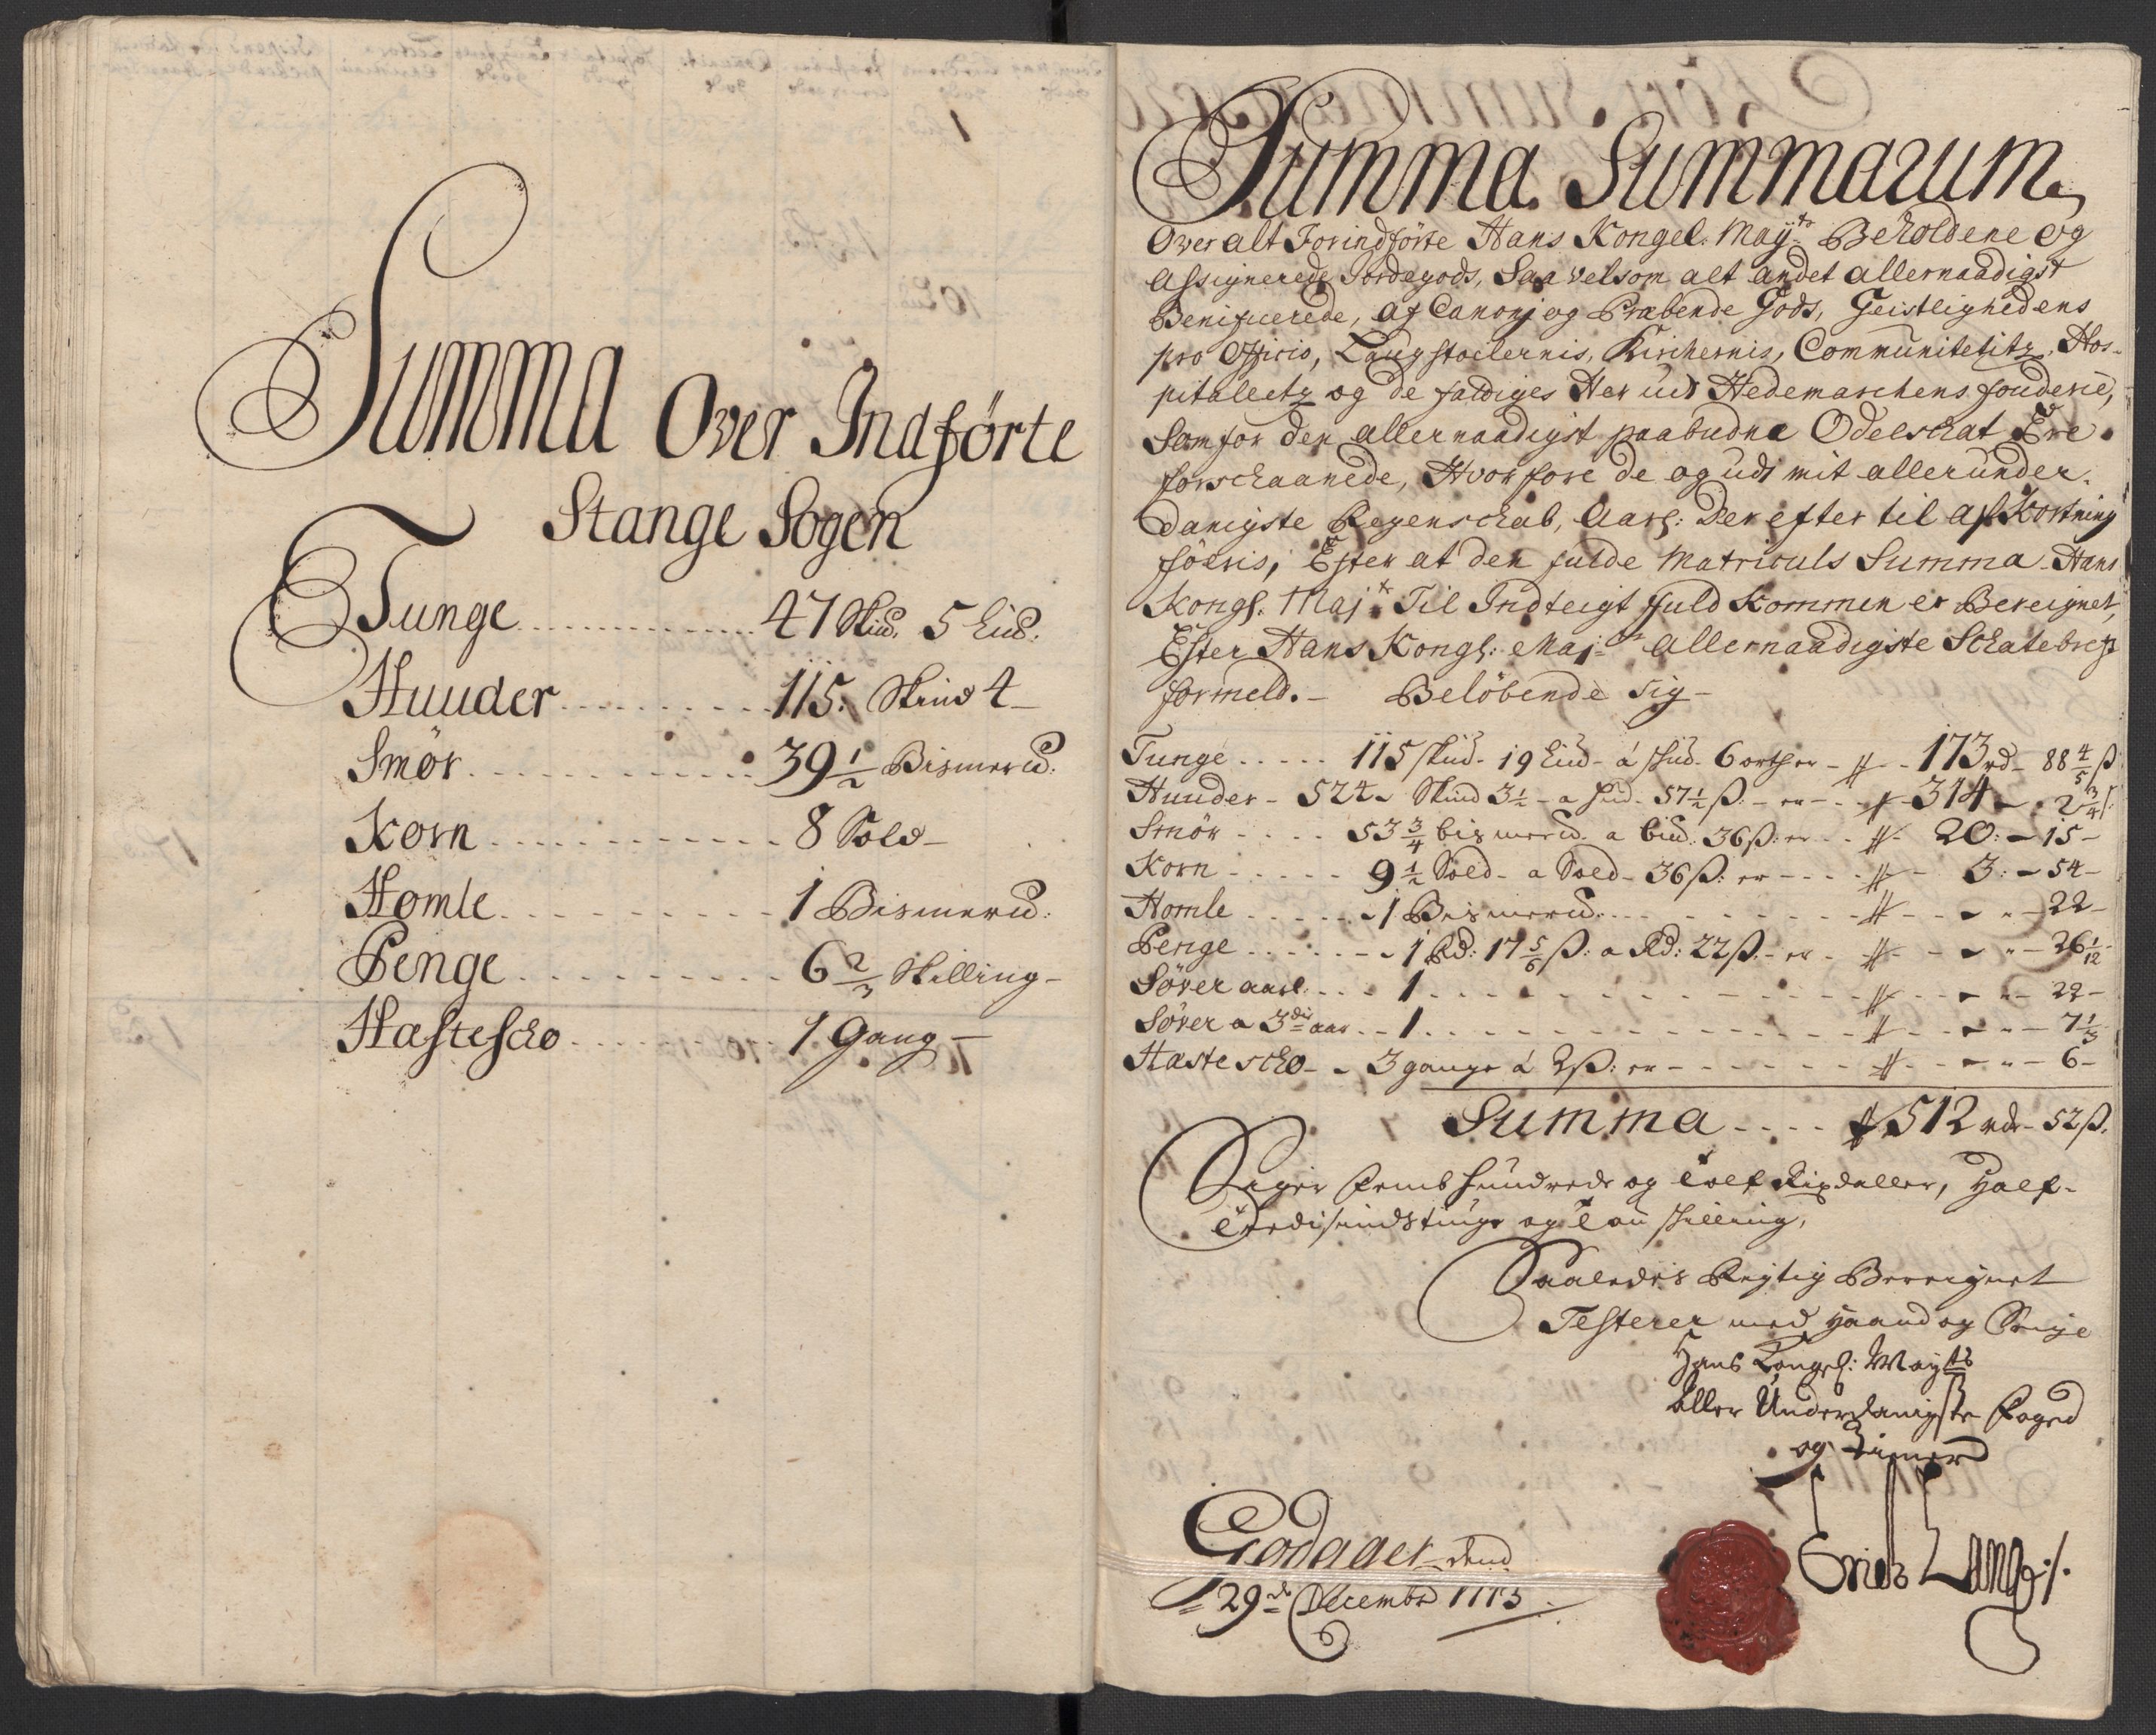 Summa Over Indførte
Stange Sogen
Tunge 47 Skud. 5 Lud:
Huuder 115. Skind 4
Smör 39 1/2 Bismerud:
Korn 8 Sold
Homle 1 Bismerud:
Penge 6 2/3 Skilling
Hæstescho 1 Gang
Summa Summarum
Over alt Forindförte Hans Kongel. May:ts Beholdene og
Assignerede Jordegods, Saavelsom alt andet allernaadigst
Benificerede, af Canonj og Præbende Gods, Geistlighedens
pro Officio, Laugstoelernis, Kirchernis, Communitetitz, Hos-
pitaletz og de fattiges Her udj Hedemarchens fouderie,
Som for den allernaadigst paabudne Odelschat Ere
forschaanede, Hvorfore de og udj mit allerunder-
danigste Regenschab, Aarl: Der efter til afkortning
föeris, Efter at den fulde Matriculs Summa Hans
Kongl. Maj:t Til Indteigt fuldkommen er Bereignet,
Efter Hans Kongl: Maj:ts Allernaadigste Schatebref
formeld. Belöbende sig
Tunge 115 skud. 19 Lud á skud. 6 ort er 173 rd 88 4/5 ß
Huuder 524 Skind 3 1/2 a hud 57 1/2 ß: er 314 2 3/4
Smör 53 3/4 bismerud a bud. 36 ß: er 20: 15
Korn 9 1/2 Sold a Sold 36 ß: er 3: 54
Homle 1 Bismerud: 22
Penge 1 Rd: 17 5/6 ß: a Rd: 22 ß. er 26 1/12
Söver aarl. 1 22
Söver a 3die aar 1 7 1/3
Hæstescho 3 gange á 2 ß: er 6
Summa 512 rdr 52 ß.
Siger Femb hundrede og Tolf Rixdaller, Half-
Tredisindstiuge og Tou skilling,
Saaledes Rigtig Bereignet
Testerer med Haand og Seigl
Hans Kongel: Mayts
Aller Underdanigste Foged
og Tiener
Godager dend
29de Decembr 1713
Erich Lang